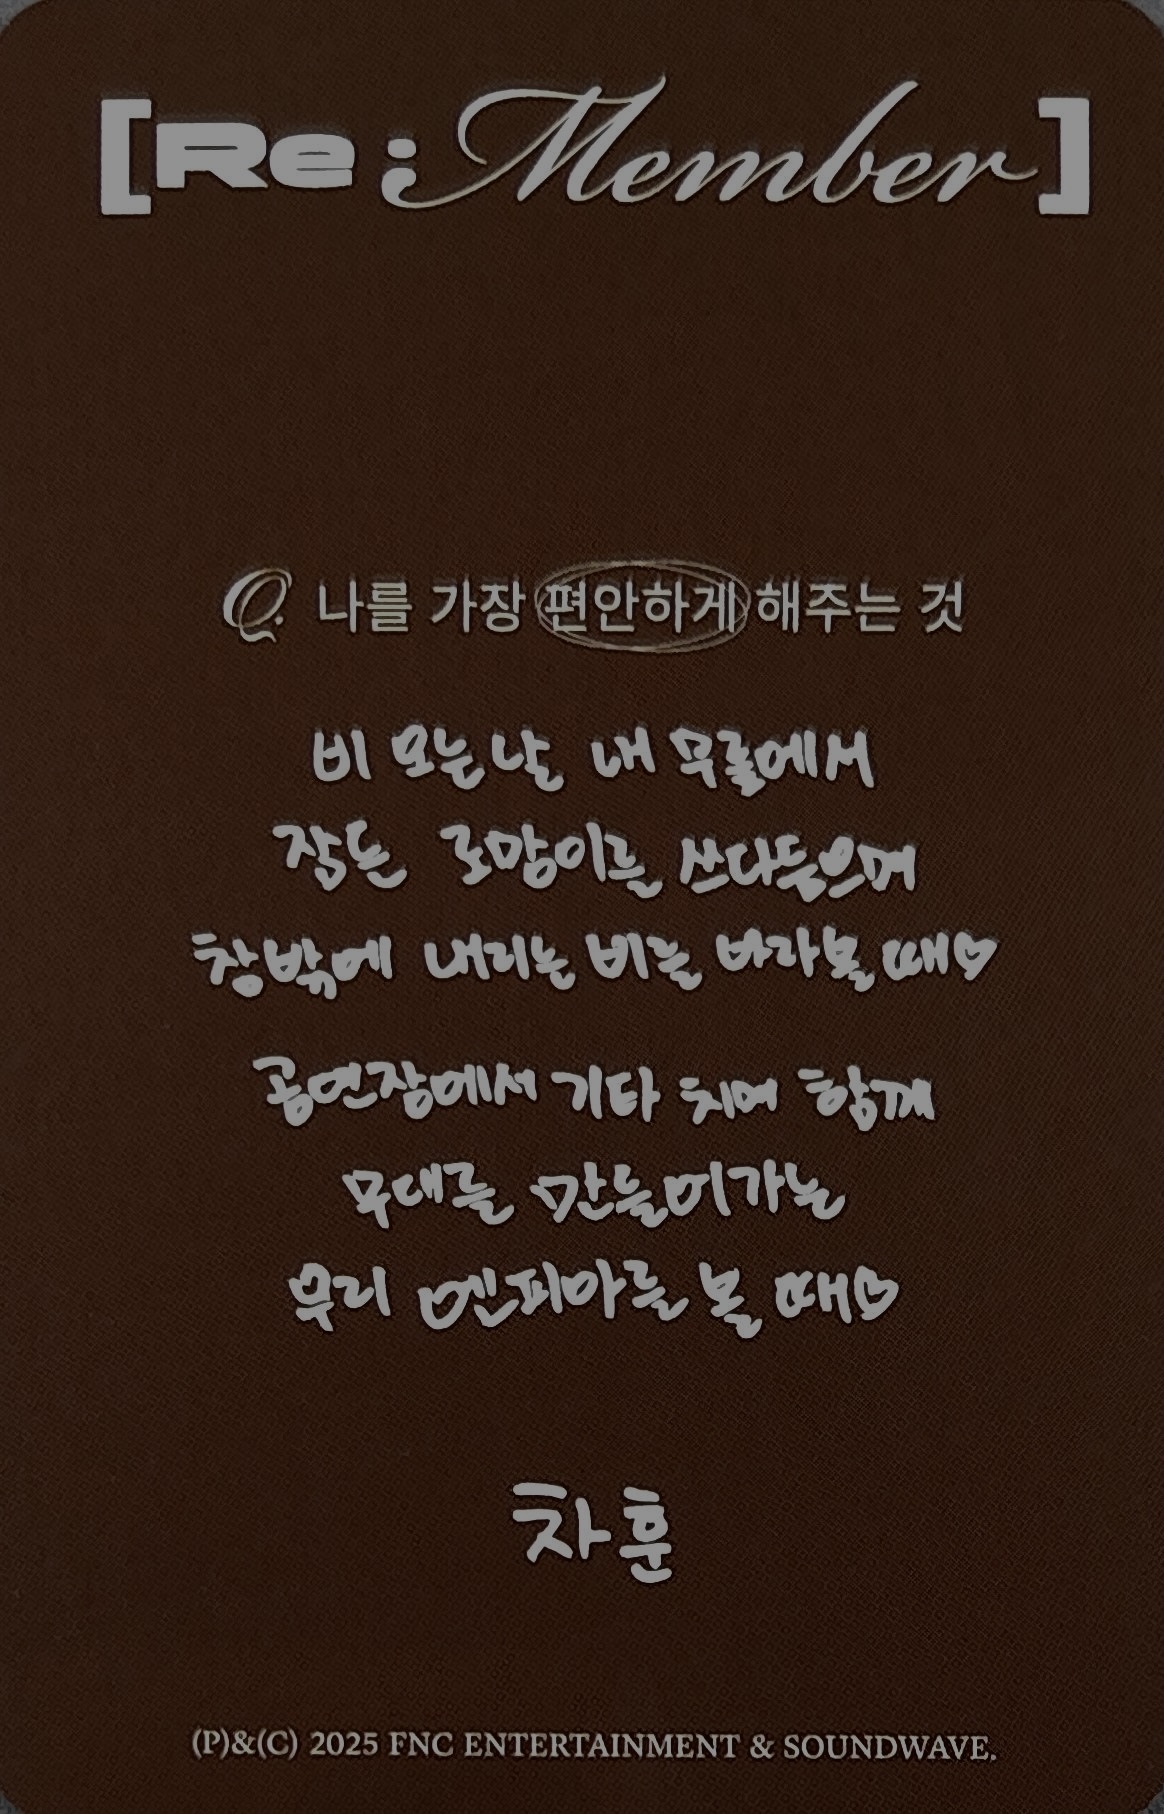 [Re; Member]
Q. 나를 가장 편안하게 해주는 것
비 오는 날 내 무릎에서
잠든 로망이를 쓰다듬으며
창밖에 내리는 비를 바라볼 때♡
공연장에서 기타 치며 함께
무대를 만들어가는
우리 엔피아를 볼 때♡
차훈
(P)&(C) 2025 FNC ENTERTAINMENT & SOUNDWAVE.